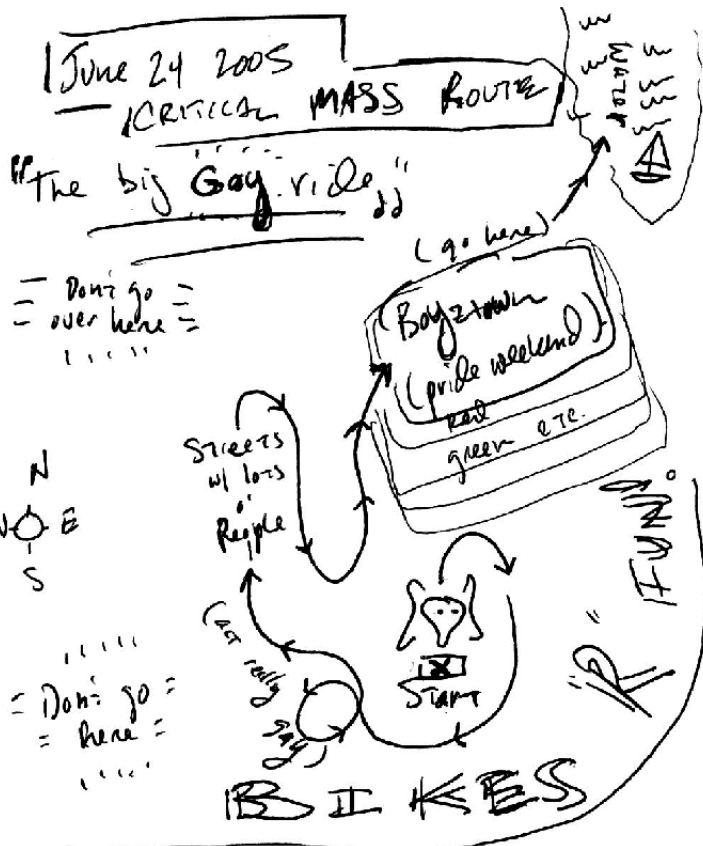 June 24 2005
CRITICAL MASS ROUTE
"The big Gay ride"
Water
(go here)
Don't go
over here
(Boyztown
(pride weekend)
red
green etc.
Streets
w/ lots
o'
People
N
W E
S
START
(act really
gay)
Don't go
here
BIKES
"R"
FUN!